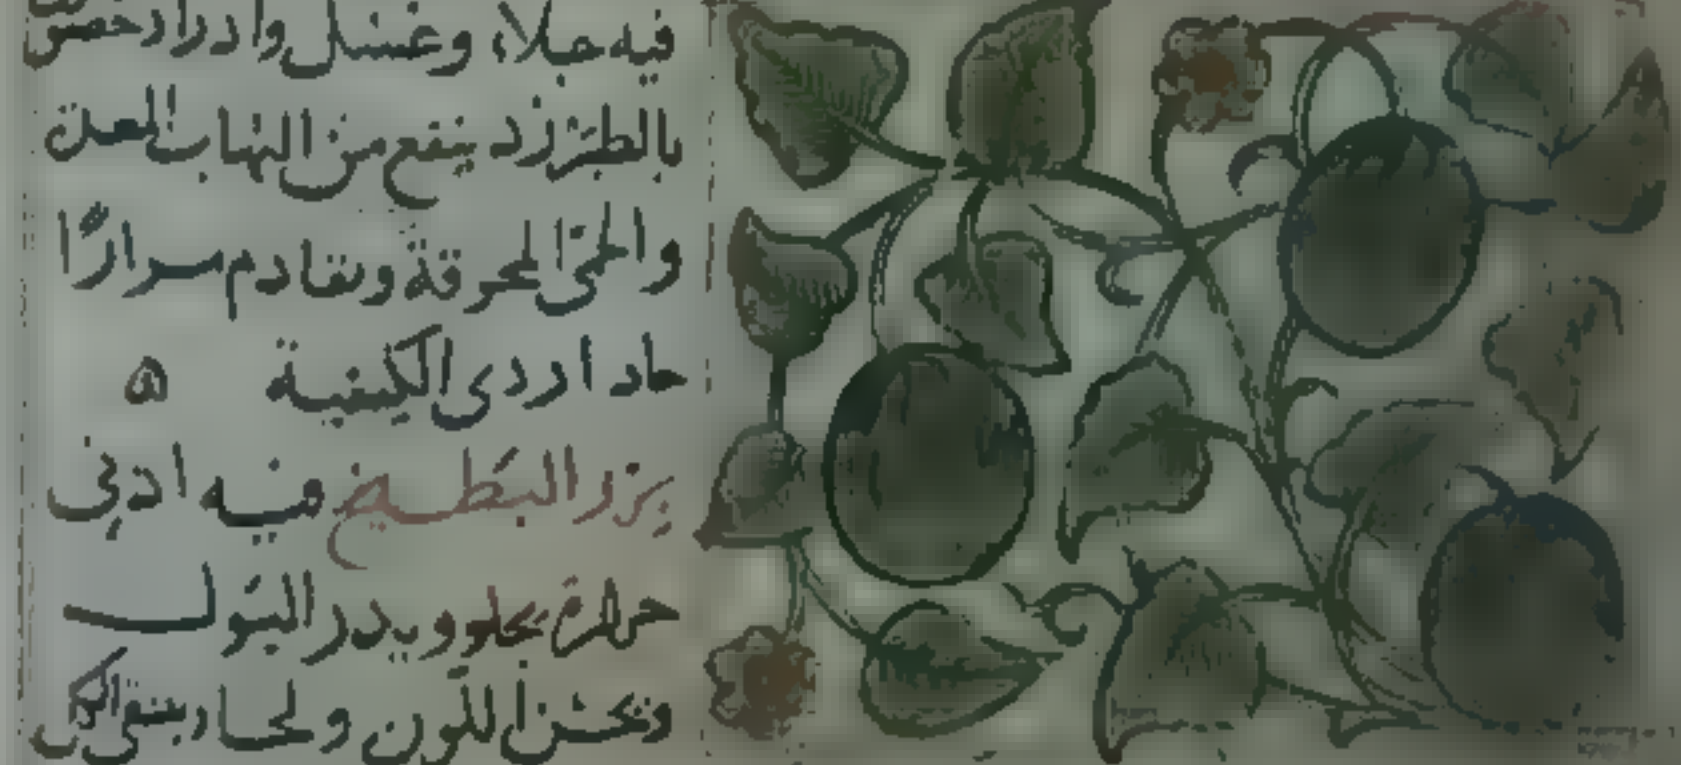 فيه جلاء وغسل وادرار خصوصا
بالطبرزد ينفع من التهاب المعدة
والحمى المحرقة وتقادم مرارًا
حاد اردى الكيفية ۵
بزر البطيخ فيه ادنى
حرارة يجلو ويدر البول
ويحسن اللون ولحا